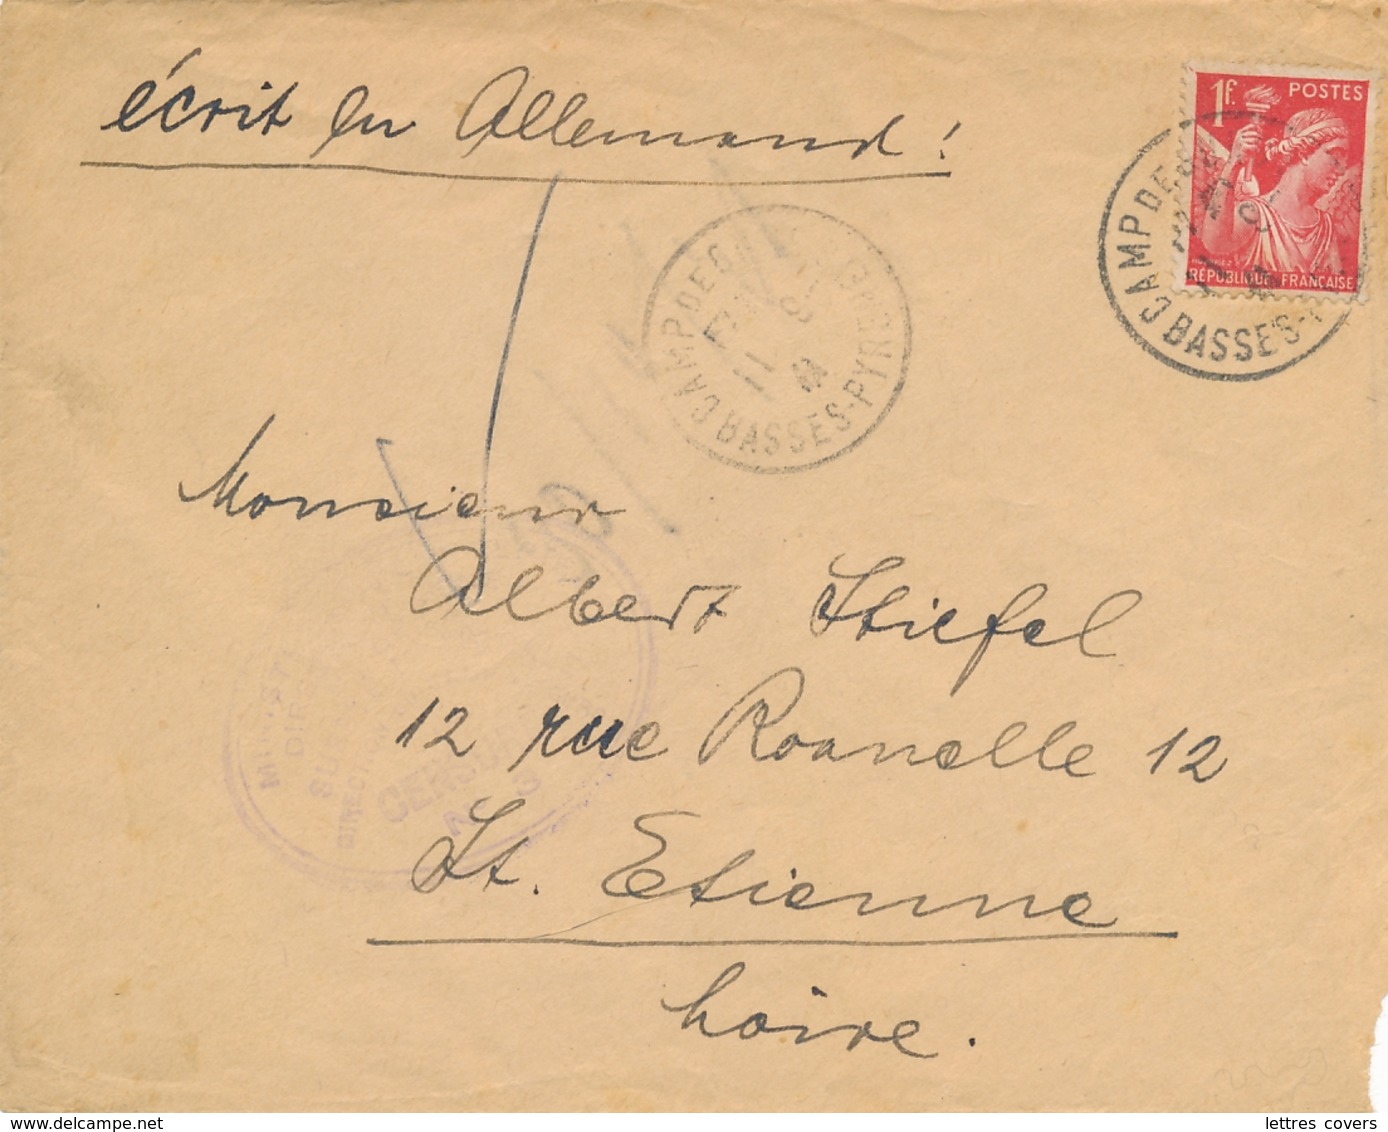 écrit en Allemand !
1f. POSTES
RÉPUBLIQUE FRANÇAISE
CAMP DE
BASSES-P
CAMP DE G
BASSES-PYR
11
Monsieur
Albert Stiefel
12 rue Roanelle 12
St. Etienne
Loire.
CENSU
www.delcampe.net
lettres covers